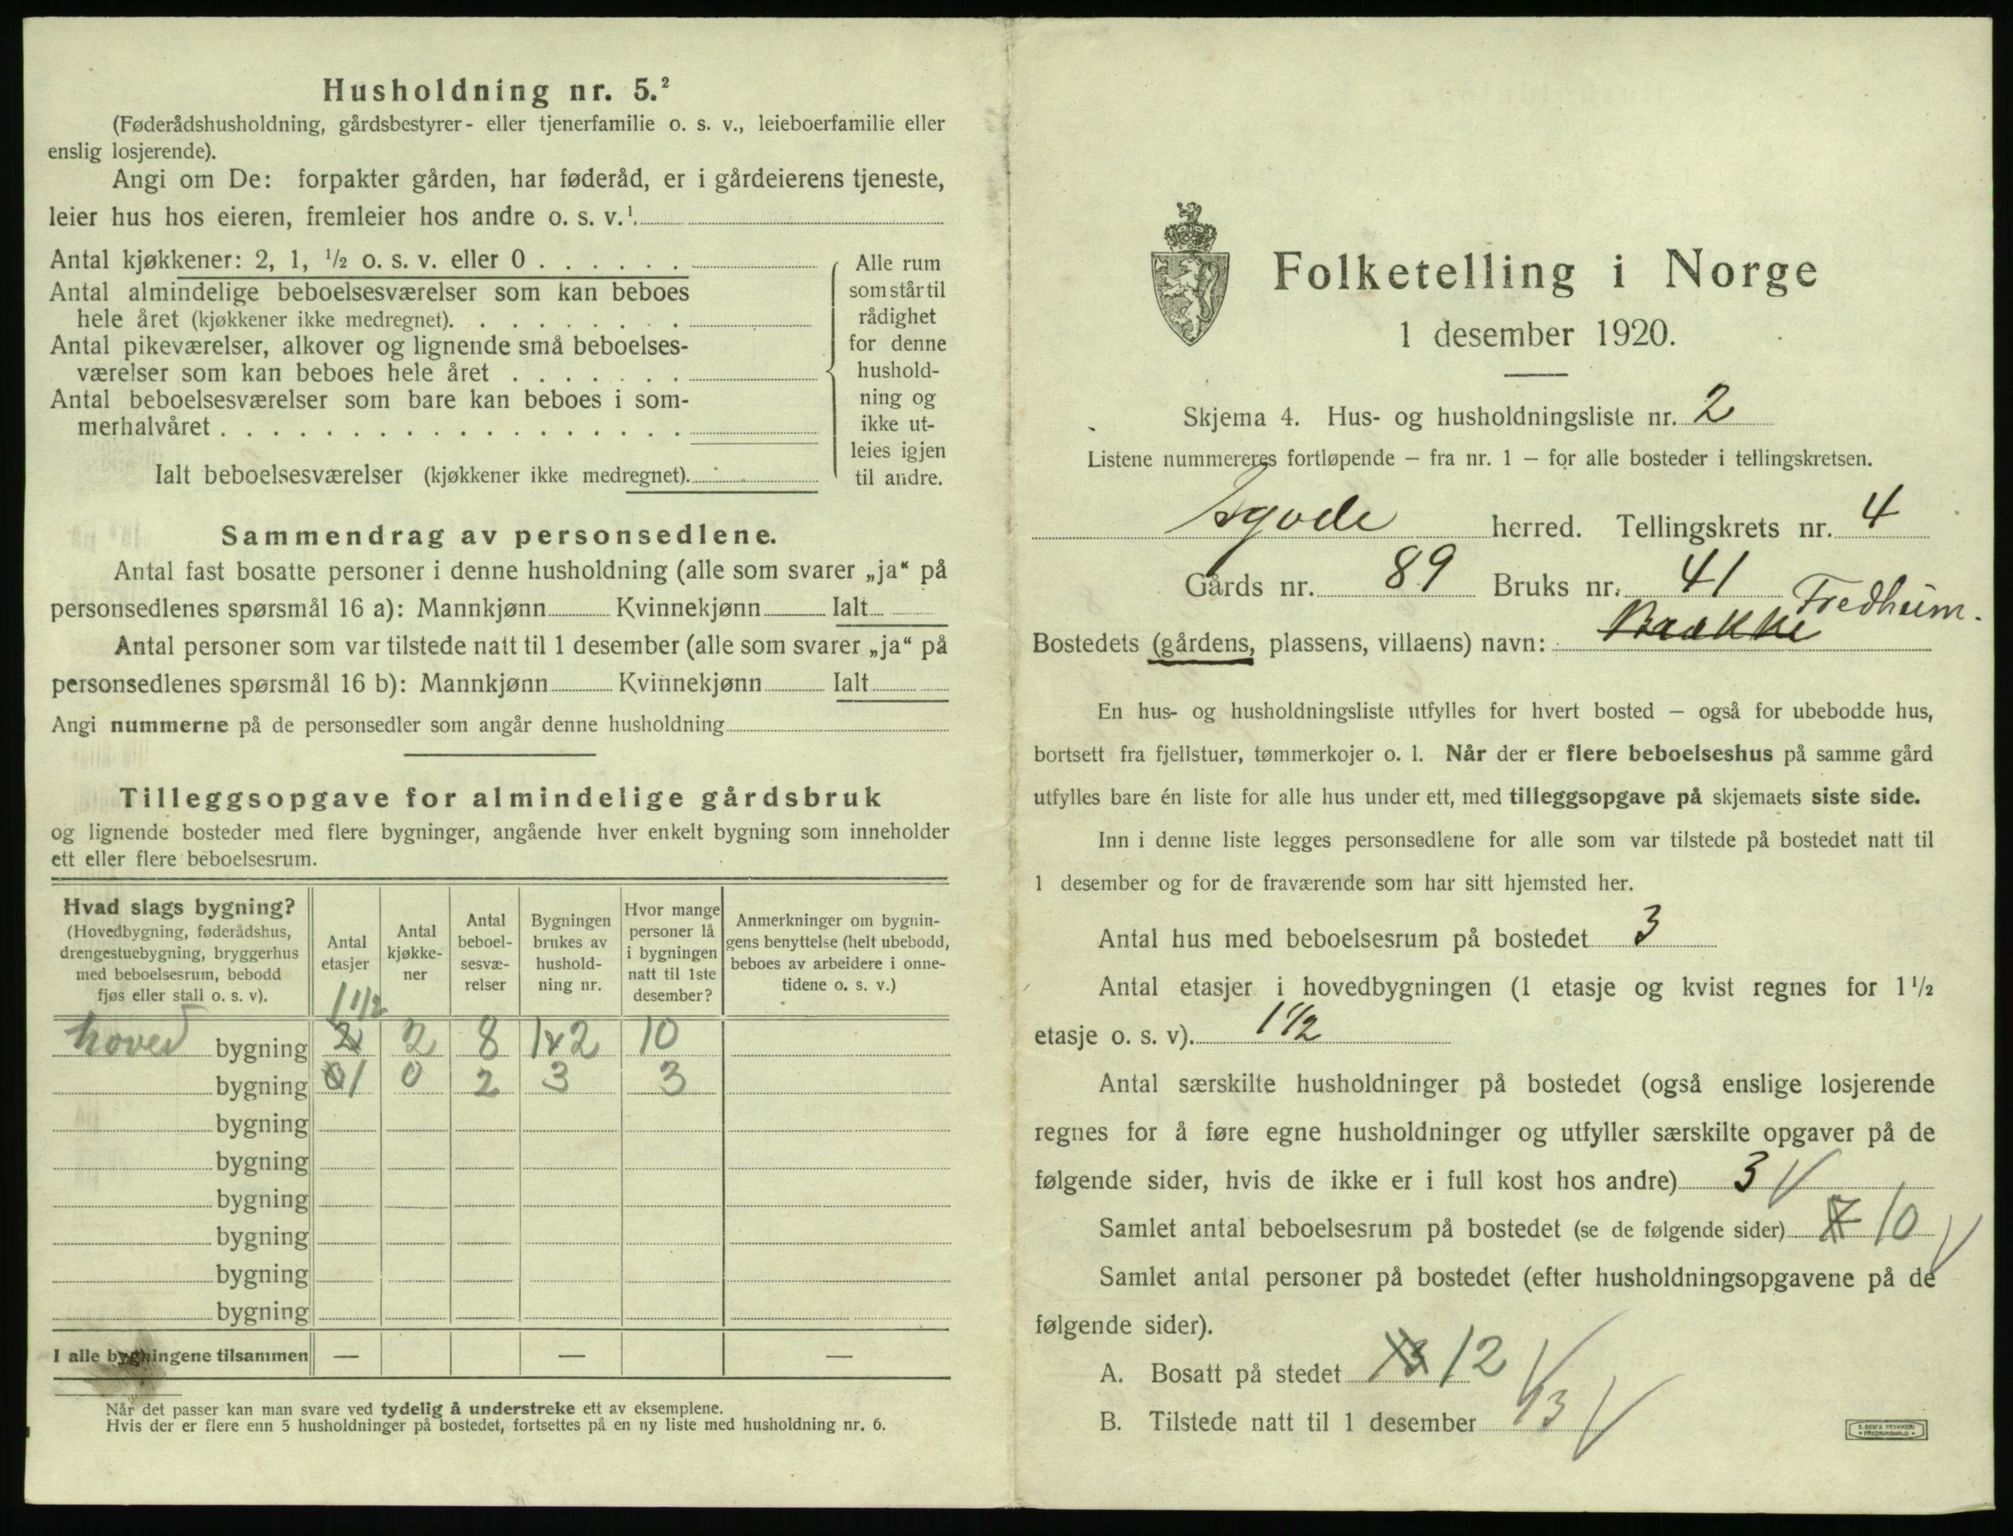 Husholdning nr. 5.²
(Føderådshusholdning, gårdsbestyrer- eller tjenerfamilie o. s. v., leieboerfamilie eller
enslig losjerende).
Angi om De: forpakter gården, har føderåd, er i gårdeierens tjeneste,
leier hus hos eieren, fremleier hos andre o. s. v.¹
Antal kjøkkener: 2, 1, ½ o. s. v. eller 0
Antal almindelige beboelsesværelser som kan beboes
hele året (kjøkkener ikke medregnet).
Antal pikeværelser, alkover og lignende små beboelses-
værelser som kan beboes hele året
Antal beboelsesværelser som bare kan beboes i som-
merhalvåret
Ialt beboelsesværelser (kjøkkener ikke medregnet).
Alle rum
som står til
rådighet
for denne
hushold-
ning og
ikke ut-
leies igjen
til andre.
Sammendrag av personsedlene.
Antal fast bosatte personer i denne husholdning (alle som svarer „ja“ på
personsedlenes spørsmål 16 a): Mannkjønn Kvinnekjønn Ialt
Antal personer som var tilstede natt til 1 desember (alle som svarer „ja“ på
personsedlenes spørsmål 16 b): Mannkjønn Kvinnekjønn Ialt
Angi nummerne på de personsedler som angår denne husholdning
Tilleggsopgave for almindelige gårdsbruk
og lignende bosteder med flere bygninger, angående hver enkelt bygning som inneholder
ett eller flere beboelsesrum.
Hvad slags bygning?
(Hovedbygning, føderådshus,
drengestuebygning, bryggerhus
med beboelsesrum, bebodd
fjøs eller stall o. s. v).
Antal
etasjer
Antal
kjøkke-
ner
Antal
beboel-
sesvæ-
relser
Bygningen
brukes av
hushold-
ning nr.
Hvor mange
personer lå
i bygningen
natt til 1ste
desember?
Anmerkninger om bygnin-
gens benyttelse (helt ubebodd,
beboes av arbeidere i onne-
tidene o. s. v.)
1 1/2
hoved bygning 2 2 8 1x2 10
bygning 0 1 0 2 3 3
bygning
bygning
bygning
bygning
bygning
bygning
I alle bygningene tilsammen — — —
Når det passer kan man svare ved tydelig å understreke ett av eksemplene.
Hvis der er flere enn 5 husholdninger på bostedet, fortsettes på en ny liste med husholdning nr. 6.
Folketelling i Norge
1 desember 1920.
Skjema 4. Hus- og husholdningsliste nr. 2
Listene nummereres fortløpende – fra nr. 1 – for alle bosteder i tellingskretsen.
herred. Tellingskrets nr. 4
Gårds nr. 89 Bruks nr. 41
Fredheim.
Bostedets (gårdens, plassens, villaens) navn: Bakke
En hus- og husholdningsliste utfylles for hvert bosted – også for ubebodde hus,
bortsett fra fjellstuer, tømmerkojer o. l. Når der er flere beboelseshus på samme gård
utfylles bare én liste for alle hus under ett, med tilleggsopgave på skjemaets siste side.
Inn i denne liste legges personsedlene for alle som var tilstede på bostedet natt til
1 desember og for de fraværende som har sitt hjemsted her.
Antal hus med beboelsesrum på bostedet 3
Antal etasjer i hovedbygningen (1 etasje og kvist regnes for 1½
etasje o. s. v). 1 1/2
Antal særskilte husholdninger på bostedet (også enslige losjerende
regnes for å føre egne husholdninger og utfyller særskilte opgaver på de
følgende sider, hvis de ikke er i full kost hos andre) 3
Samlet antal beboelsesrum på bostedet (se de følgende sider) 7 10
Samlet antal personer på bostedet (efter husholdningsopgavene på de
følgende sider).
A. Bosatt på stedet 13 12
B. Tilstede natt til 1 desember 13
E. SEM'S TRYKKERI
FREDRIKSHALD